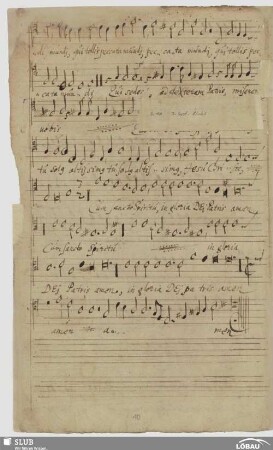 di mundi, qui tollis peccata mundi, pec cata mundi, qui tollis pec
cata mundi Qui sedes, ad dexteram Patris, miserere
nobis
tu solus altissimus tu solus altissimus, Jesu Christe,
Cum sancto Spiritu, in gloria Dei Patris amen
Cum sancto Spiritu in gloria
Dei Patris amen, in gloria Dei, pa tris amen
amen am. men
SLUB
Wir führen Wissen.
LÖBAU